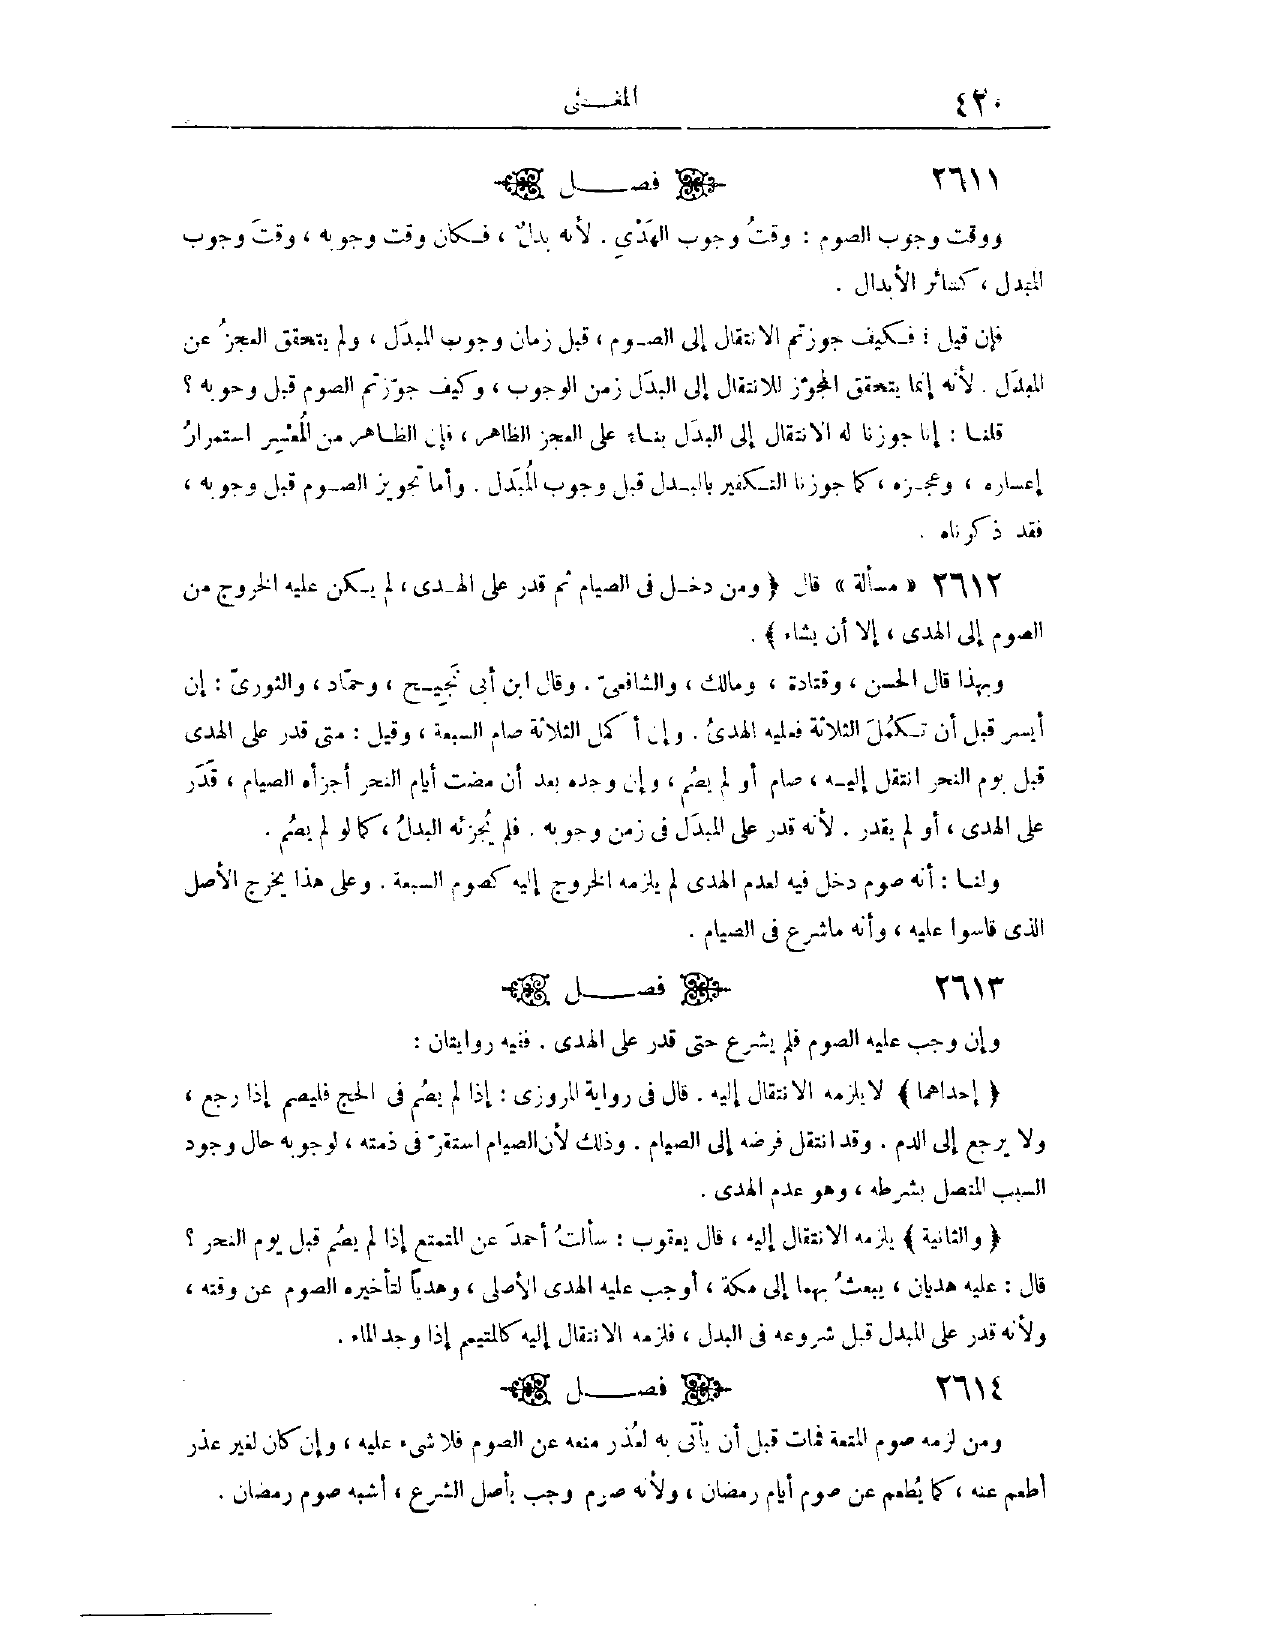 ٤٢٠ المغـــنى
٢٦١١ فصـــل
ووقت وجوب الصوم : وقتُ وجوب الهَدْيِ . لأنه بدلٌ ، فـكان وقت وجوبه ، وقتَ وجوب
المبدل ، كسائر الأبدال .
فإن قيل : فـكيف جوزتم الانتقال إلى الصـوم ، قبل زمان وجوب المبدَل ، ولم يتحقق العجزُ عن
المبدَل . لأنه إنما يتحقق المجوّز للانتقال إلى البدَل زمن الوجوب ، وكيف جوّزتم الصوم قبل وجوبه ؟
قلنـا : إنا جوزنا له الانتقال إلى البدَل بنـاء على العجز الظاهر ، فإن الظـاهر من المُعْسِرِ استمرارُ
إعساره ، وعجـزه ، كما جوزنا التـكفير بالبـدل قبل وجوب المُبدَل . وأما تجويز الصـوم قبل وجوبه ،
فقد ذكرناه .
٢٦١٢ « مسألة » قال ﴿ ومن دخـل فى الصيام ثم قدر على الهـدى ، لم يـكن عليه الخروج من
الصوم إلى الهدى ، إلا أن يشاء ﴾ .
وبهذا قال الحسن ، وقتادة ، ومالك ، والشافعىّ . وقال ابن أبى نَجِيـح ، وحمّاد ، والثورىّ : إن
أيسر قبل أن تـكمُلَ الثلاثة فعليه الهدىُ . وإن أكمل الثلاثة صام السبعة ، وقيل : متى قدر على الهدى
قبل يوم النحر انتقل إليـه ، صام أو لم يصُم ، وإن وجده بعد أن مضت أيام النحر أجزأه الصيام ، قَدَر
على الهدى ، أو لم يقدر . لأنه قدر على المبدَل فى زمن وجوبه . فلم يُجزئه البدلُ ، كما لو لم يصُم .
ولنـا : أنه صوم دخل فيه لعدم الهدى لم يلزمه الخروج إليه كصوم السبعة . وعلى هذا يخرج الأصل
الذى قاسوا عليه ، وأنه ماشرع فى الصيام .
٢٦١٣ فصـــل
وإن وجب عليه الصوم فلم يشرع حتى قدر على الهدى . ففيه روايتان :
﴿ إحداهما ﴾ لا يلزمه الانتقال إليه . قال فى رواية المروزى : إذا لم يصُم فى الحج فليصم إذا رجع ،
ولا يرجع إلى الدم . وقد انتقل فرضه إلى الصيام . وذلك لأن الصيام استقرّ فى ذمته ، لوجوبه حال وجود
السبب المتصل بشرطه ، وهو عدم الهدى .
﴿ والثانية ﴾ يلزمه الانتقال إليه ، قال يعقوب : سألتُ أحمدَ عن المتمتع إذا لم يصُم قبل يوم النحر ؟
قال : عليه هديان ، يبعثُ بهما إلى مكة ، أوجب عليه الهدى الأصلى ، وهديًا لتأخيره الصوم عن وقته ،
ولأنه قدر على المبدل قبل شروعه فى البدل ، فلزمه الانتقال إليه كالمتيمم إذا وجد الماء .
٢٦١٤ فصـــل
ومن لزمه صوم المتعة فمات قبل أن يأتى به لعُذر منعه عن الصوم فلا شىء عليه ، وإن كان لغير عذر
أطعم عنه ، كما يُطعم عن صوم أيام رمضان ، ولأنه صوم وجب بأصل الشرع ، أشبه صوم رمضان .